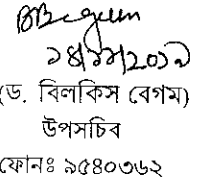 BBegum
১৪/১১/২০১৯
(ড. বিলকিস বেগম)
উপসচিব
ফোনঃ ৯৫৪০৩৬২